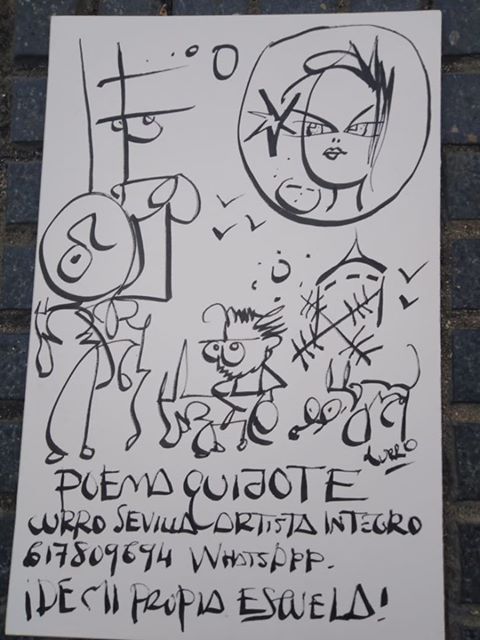 CURRO
POEMA QUIJOTE
CURRO SEVILLA ARTISTA INTEGRO
617809694 WHATSAPP.
¡DE MI PROPIA ESCUELA!